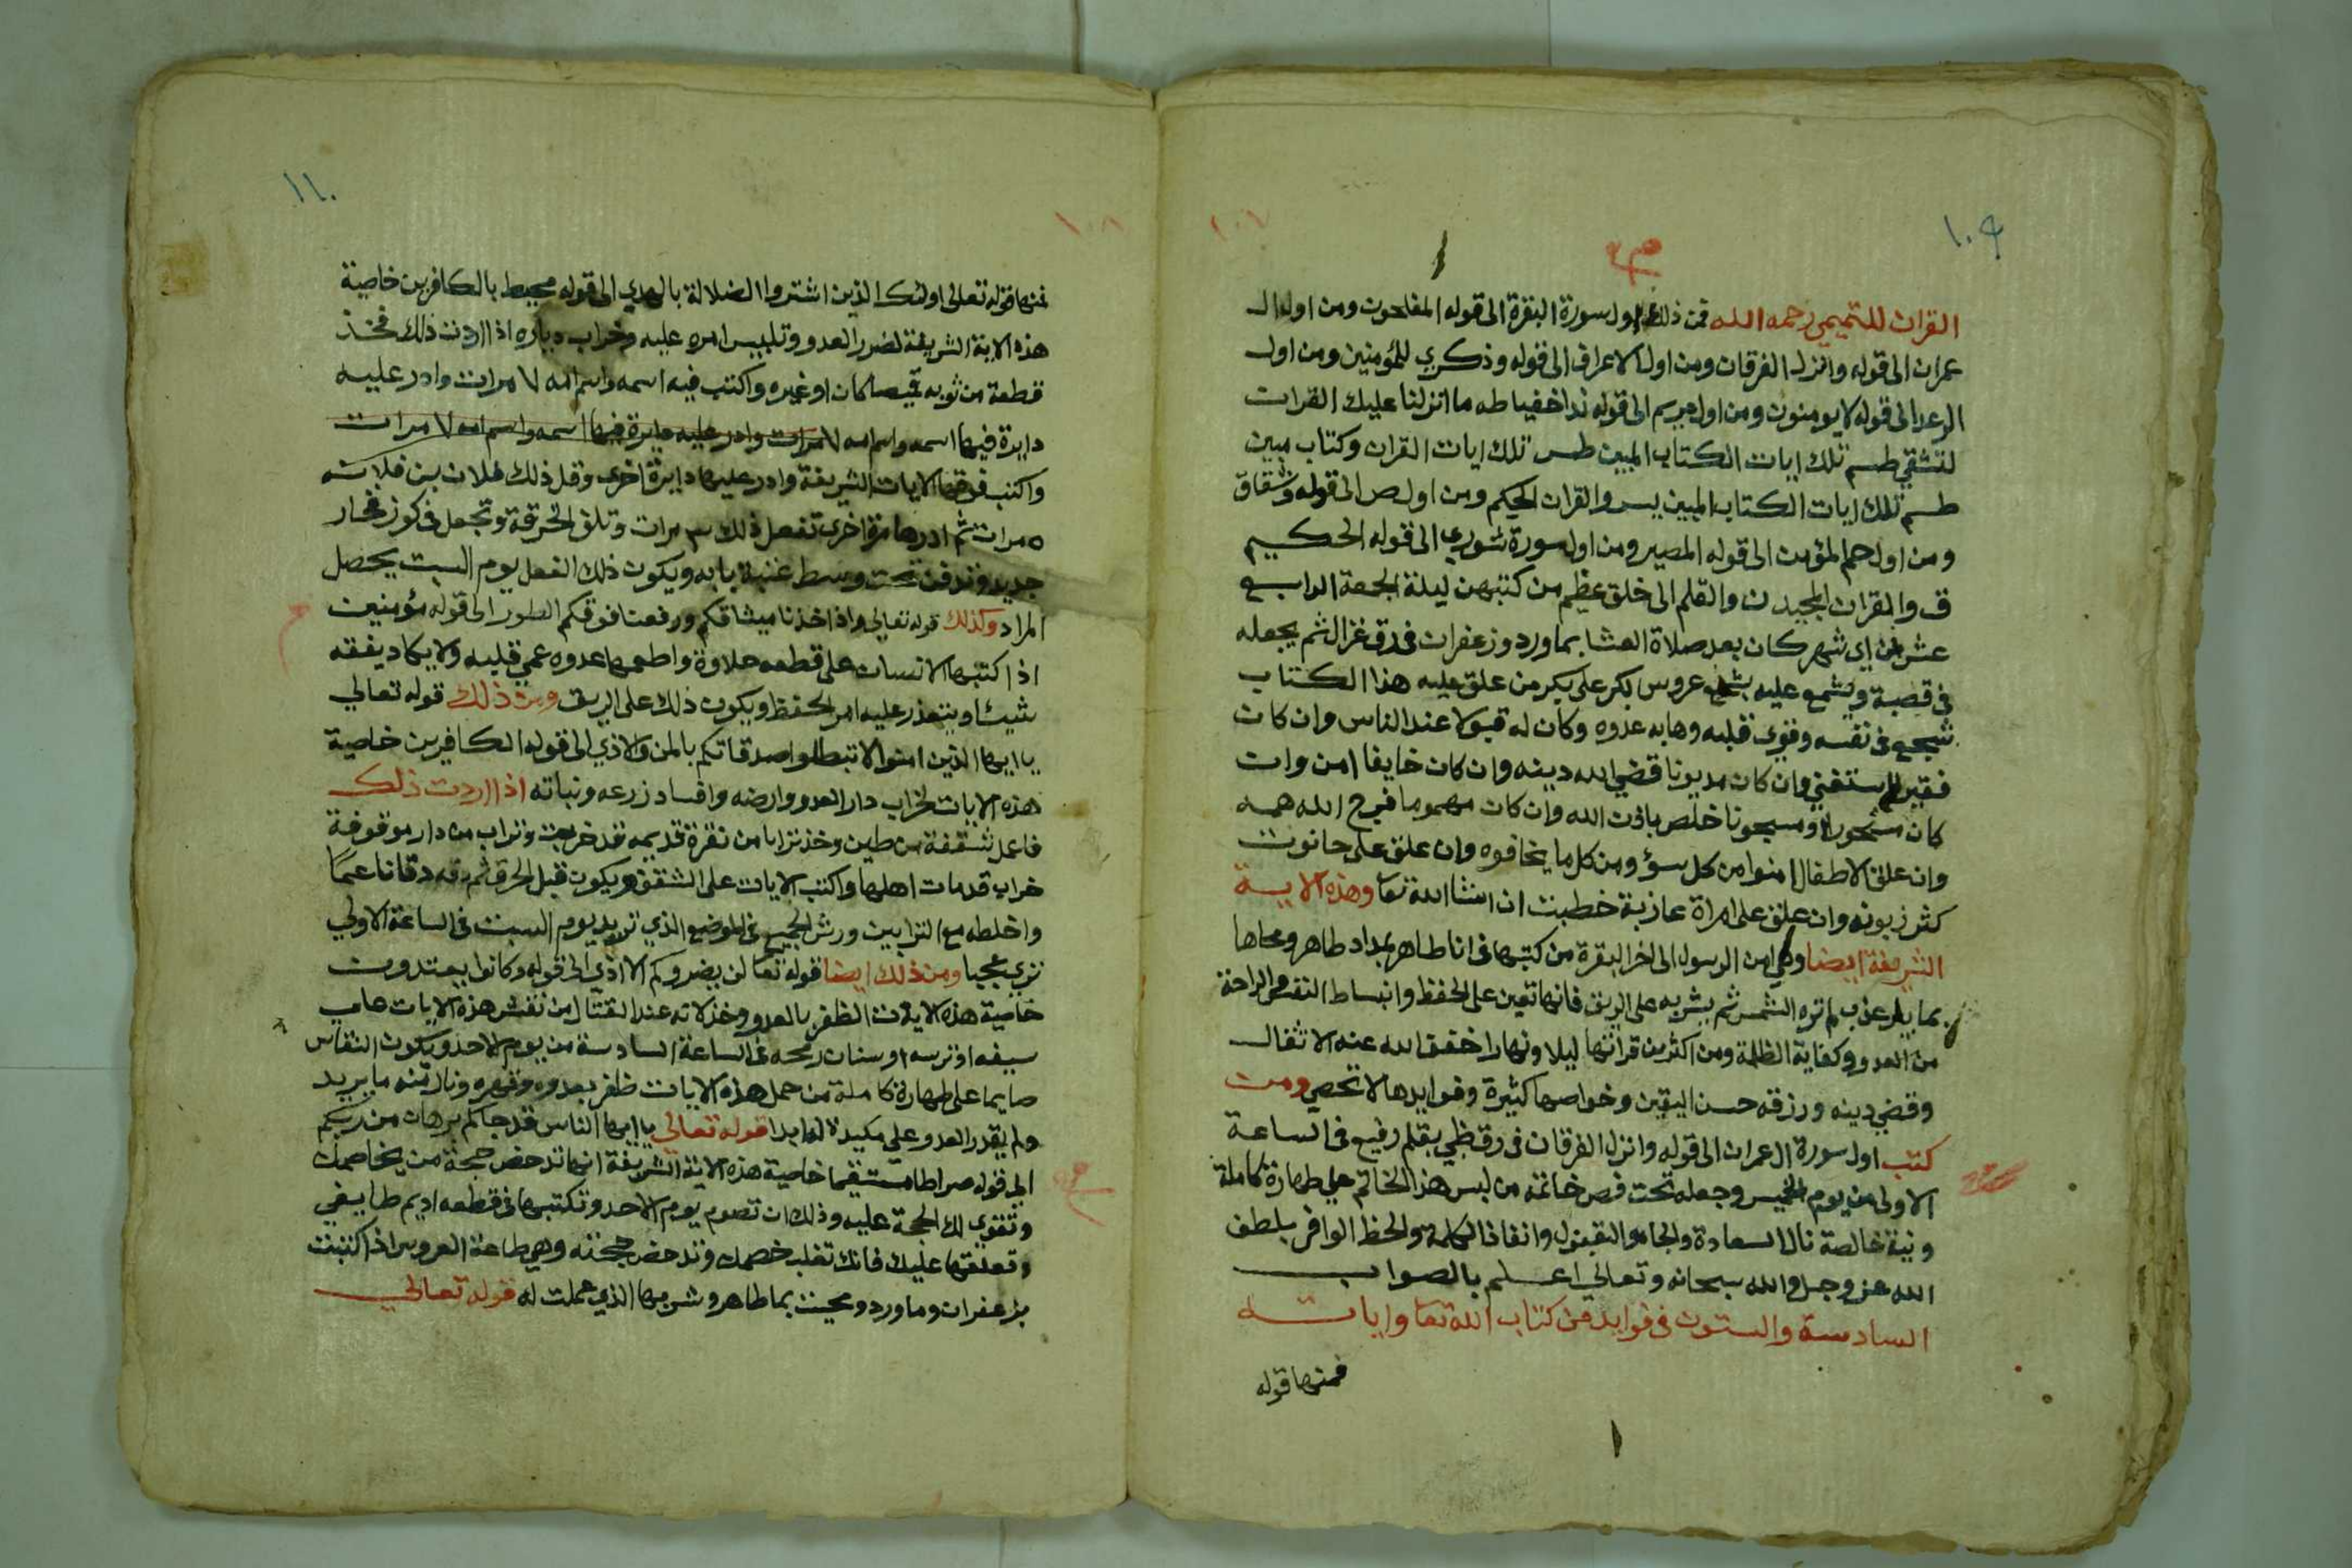 ١٠٩
١٠٧
القران للتميمي رحمه الله فمن ذلك اول سورة البقرة الى قوله المفلحون ومن اول ال
عمران الى قوله وانزل الفرقان ومن اول الاعراف الى قوله وذكري للمؤمنين ومن اول
الرعد الى قوله لا يومنون ومن اول مريم الى قوله ندا خفيا طه ما انزلنا عليك القران
لتشقي طسم تلك ايات الكتاب المبين طس تلك ايات القران وكتاب مبين
طسم تلك ايات الكتاب المبين يس والقران الحكيم ومن اول ص الى قوله وشقاق
ومن اول حم المؤمن الى قوله المصير ومن اول سورة شوري الى قوله الحكيم
ق والقران المجيد ن والقلم الى خلق عظيم من كتبهن ليلة الجمعة الرابع
عشر من اي شهر كان بعد صلاة العشا بماورد وزعفران في رق غزال ثم يجعله
في قصبة ويشمع عليه بشمع عروس بكر على بكر من علق عليه هذا الكتاب
شجع في نفسه وقوي قلبه وهابه عدوه وكان له قبولا عند الناس وان كان
فقيرا استغني وان كان مديونا قضي الله دينه وان كان خايفا امن وان
كان مسحورا او مسجونا خلص باذن الله وان كان مهموما فرج الله همه
وان علق الاطفال امنوا من كل سؤ ومن كل ما يخافوه وان علق على حانوت
كثر زبونه وان علق على امراة عازبة خطبت ان انشا الله تعا وهذه الاية
الشريفة ايضا وهي امن الرسول الى اخر البقرة من كتبها في انا طاهر بمداد طاهر ومحاها
بما بير عذب لم تره الشمس ثم يشربه على الريق فانها تعين على الحفظ وانبساط النفس والراحة
من العدو وكفاية الظلمة ومن اكثر من قراتها ليلا ونهارا خفف الله عنه الاثقال
وقضي دينه ورزقه حسن اليقين وخواصها كثيرة وفوايدها لا تحصي ومن
كتب اول سورة ال عمران الى قوله وانزل الفرقان في رق ظبي بقلم رفيع في الساعة
الاولى من يوم الخميس وجعله تحت فص خاتمه من لبس هذا الخاتم على طهارة كاملة
ونية خالصة نال السعادة والجاه والقبول وانفاذ الكلمة والحظ الوافر بلطف
الله عز وجل والله سبحانه وتعالي اعلم بالصواب
السادسة والستون في فوايد من كتاب الله تعا واياته
فمنها قوله
١١٠
١٠٨
فمنها قوله تعالى اولئك الذين اشتروا الضلالة بالهدي الى قوله محيط بالكافرين خاصية
هذه الاية الشريفة لضرر العدو وتلبيس امره عليه وخراب دياره اذا اردت ذلك فخذ
قطعة من ثوبه قميصا كان او غيره واكتب فيه اسمه واسم امه ٧ مرات وادر عليه
دايرة فيها اسمه واسم امه ٧ مرات وادر عليه دايرة فيها اسمه واسم امه ٧ مرات
واكتب فوقها الايات الشريفة وادر عليها دايرة اخري وقل ذلك فلان بن فلانه
٥ مرات ثم ادرها مرة اخري تفعل ذلك ٣ مرات وتلق الخرقة وتجعل في كوز فخار
جديد وتدفن تحت وسط عتبة بابه ويكون ذلك الفعل يوم السبت يحصل
المراد وكذلك قوله تعالى واذ اخذنا ميثاقكم ورفعنا فوقكم الطور الى قوله مؤمنين
اذا كتبها الانسان على قطعه حلاوة واطعمها عدوه عمي قلبه ولا يكاد يفقه
شيئا ويتعذر عليه امر الحفظ ويكون ذلك على الريق ومن ذلك قوله تعالي
يا ايها الذين امنوا لا تبطلوا صدقاتكم بالمن والاذي الى قوله الكافرين خاصية
هذه الايات لخراب دار العدو وارضه وافساد زرعه ونباته اذا اردت ذلك
فاعمل شقفة من طين وخذ ترابا من نقرة قديمه قد خربت وتراب من دار موقوفة
خراب قد مات اهلها واكتب الايات على الشقف ويكون قبل الحرق ثم دقه دقا ناعما
واخلطه مع الترابين ورش الجميع في الموضع الذي تريد يوم السبت في الساعة الاولي
تري عجبا ومن ذلك ايضا قوله تعا لن يضروكم الا اذي الى قوله وكانوا يعتدون
خاصية هذه الايات الظفر بالعدو وخذلانه عند القتال من نقش هذه الايات علي
سيفه او ترسه او سنان رمحه في الساعة السادسة من يوم الاحد ويكون النقاش
صايما على طهارة كاملة من حمل هذه الايات ظفر بعدوه وقهره ونال منه ما يريد
ولم يقدر العدو على مكيدة له ابدا قوله تعالي يا ايها الناس قد جاكم برهان من ربكم
الى قوله صراطا مستقيما خاصية هذه الاية الشريفة انها تدحض حجة من يخاصمك
وتقوي لك الحجة عليه وذلك ان تصوم يوم الاحد وتكتبها في قطعه اديم طايفي
وتعلقها عليك فانك تغلب خصمك وتدحض حجته وهي طاعة العروس اذا كتبت
بزعفران وماورد ومحيت بما طاهر وشربها الذي عملت له قوله تعالي